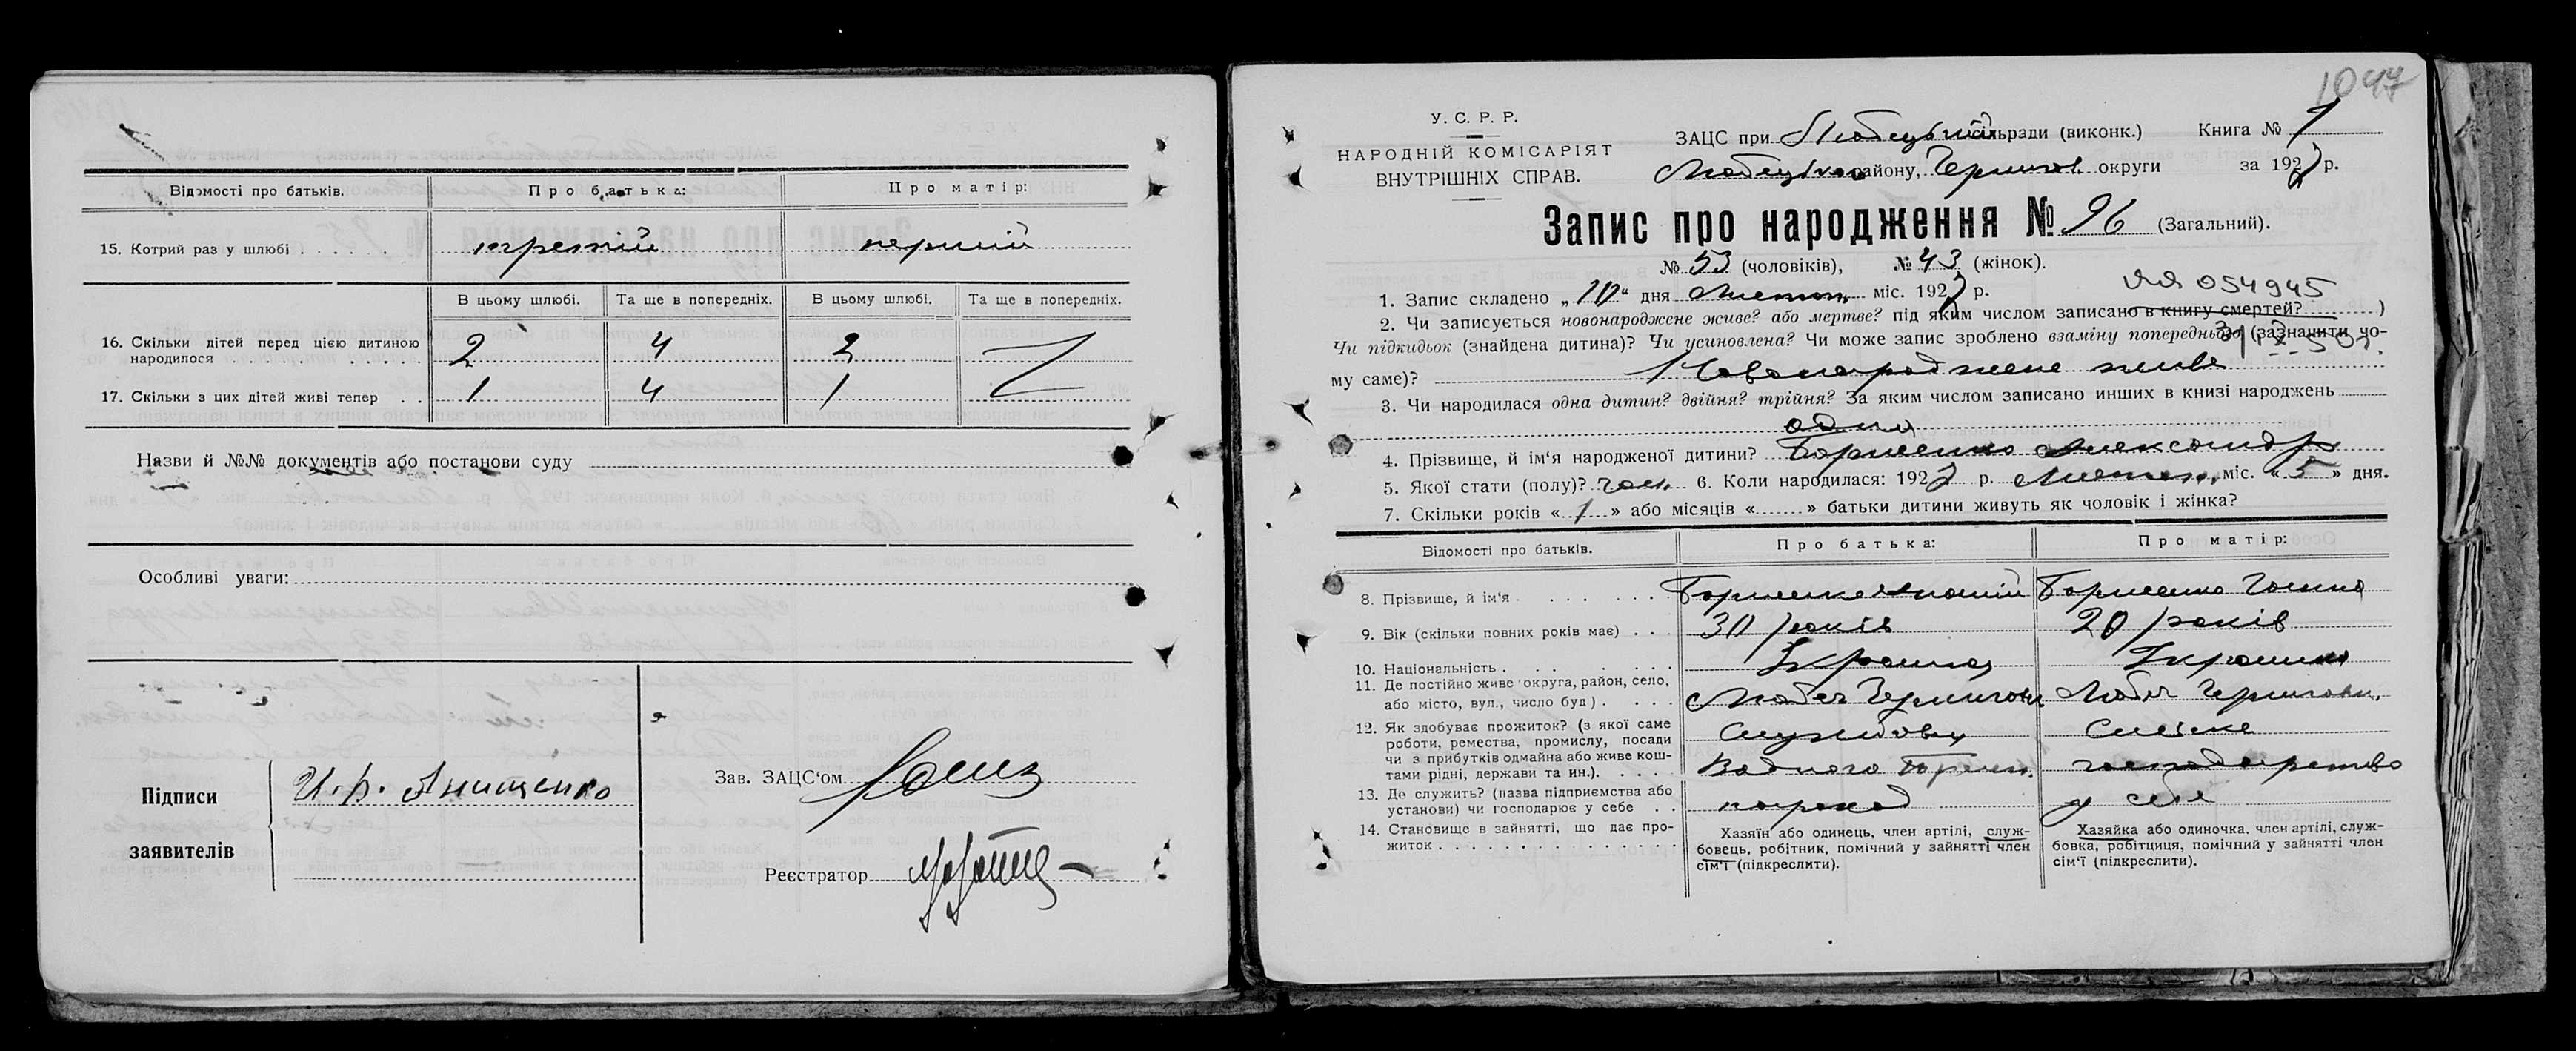 Відомості про батьків. Про батька: Про матір:
15. Котрий раз у шлюбі . . . . . . третій перший
В цьому шлюбі. Та ще в попередніх. В цьому шлюбі. Та ще в попередніх.
16. Скільки дітей перед цією дитиною
народилося . . . . . . 2 4 2
17. Скільки з цих дітей живі тепер . . 1 4 1
Назви й №№ документів або постанови суду
Особливі уваги:
Підписи
заявителів
Анищенко
Зав. ЗАЦС‘ом
Реєстратор
1047
У. С. Р. Р.
НАРОДНІЙ КОМІСАРІЯТ
ВНУТРІШНІХ СПРАВ.
ЗАЦС при Любецькій сільради (виконк.) Книга № 1
Любецького району, Черниг. округи за 1927 р.
Запис про народження № 96 (Загальний).
№ 53 (чоловіків), № 43 (жінок).
054945
1. Запис складено „10“ дня Листоп. міс. 1927 р.
2. Чи записується новонароджене живе? або мертве? під яким числом записано в книгу смертей? )
Чи підкидьок (знайдена дитина)? Чи усиновлена? Чи може запис зроблено взаміну попередньго (зазначити чо-
му саме)? Новонароджене живе
3. Чи народилася одна дитин? двійня? трійня? За яким числом записано инших в книзі народжень
одна
4. Прізвище, й ім‘я народженої дитини? Борисенко Александр
5. Якої стати (полу)? чол. 6. Коли народилася: 1927 р. Листоп. міс. «5» дня.
7. Скільки років «1» або місяців «......» батьки дитини живуть як чоловік і жінка?
Відомості про батьків. Про батька: Про матір:
8. Прізвище, й ім‘я . . . . . . Борисенко Борисенко
9. Вік (скільки повних років має) . . . 30 років 20 років
10. Національність . . . . . . Українец Українка
11. Де постійно живе округа, район, село,
або місто, вул., число буд) . . . . Любеч Чернигови. Любеч Чернигови.
12. Як здобуває прожиток? (з якої саме
роботи, ремества, промислу, посади
чи з прибутків одмайна або живе кош-
тами рідні, держави та ин.). . . . . Службовец Водного Сільске господарство
13. Де служить? (назва підприємства або
установи) чи господарює у себе . . пароход у себе
14. Становище в зайнятті, що дає про-
житок . . . . . . . . . . . . . .
Хазяїн або одинець, член артілі, служ-
бовець, робітник, помічний у зайнятті член
сім‘ї (підкреслити).
Хазяйка або одиночка, член артілі, служ-
бовка, робітциця, помічний у зайнятті член
сім‘ї (підкреслити).